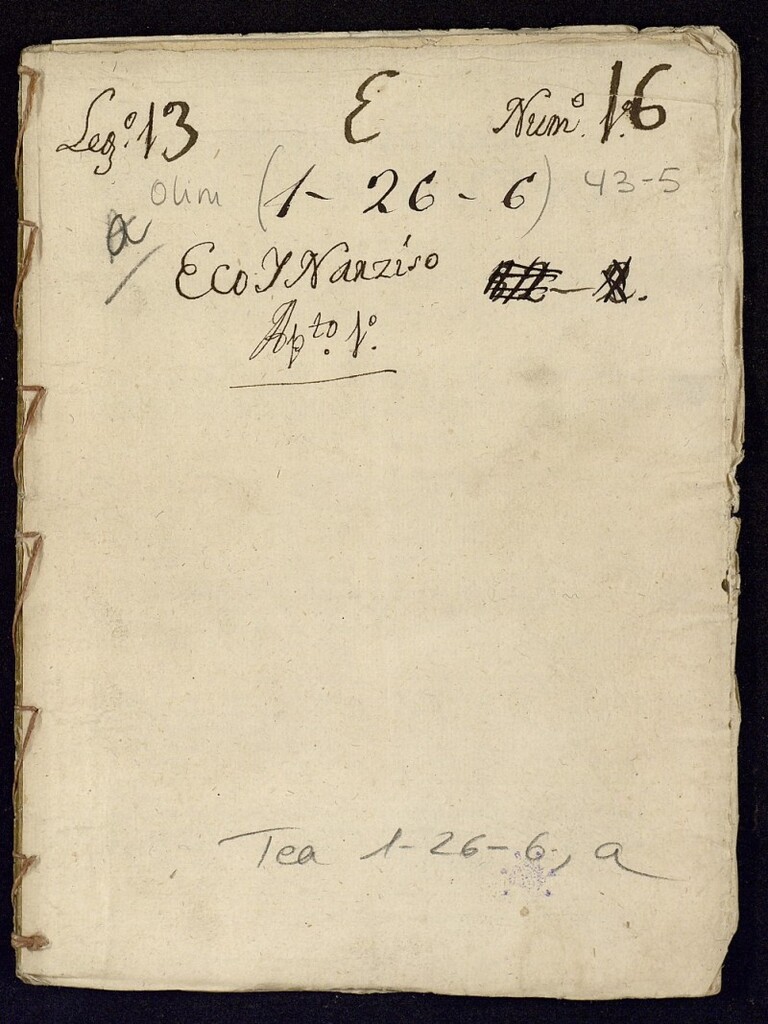 Leg.º 13 E Num.º 16
Olim (1-26-6) 43-5
a
Eco Y Narziso
Ap.to 1.º
Tea 1-26-6, a